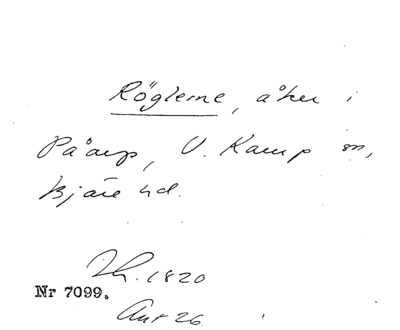 Röglerne, åker i
Påarp, V. Karup sn,
Bjäre hd.
Lh. 1820
Nr 7099.
Akt 26